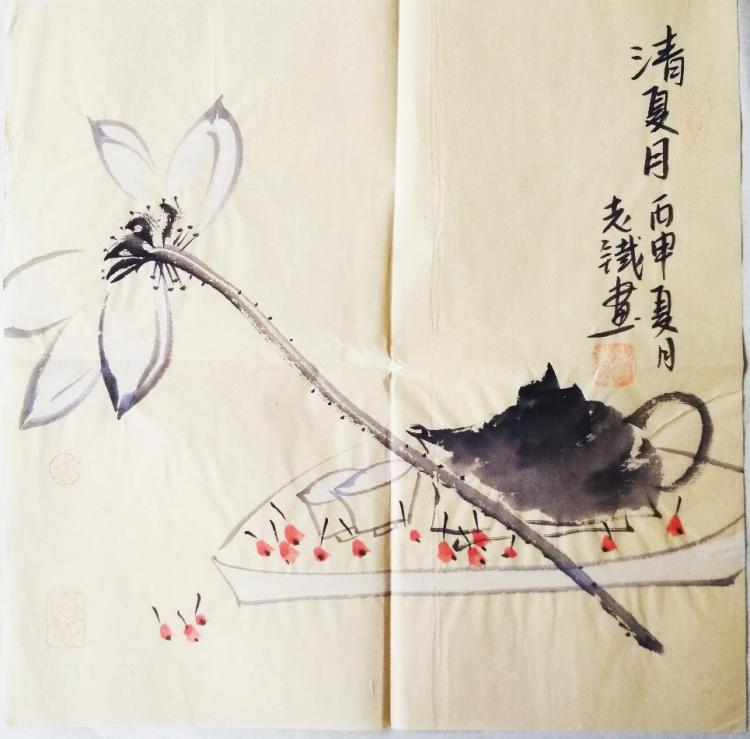 清夏月
丙申夏月
志鐵畫